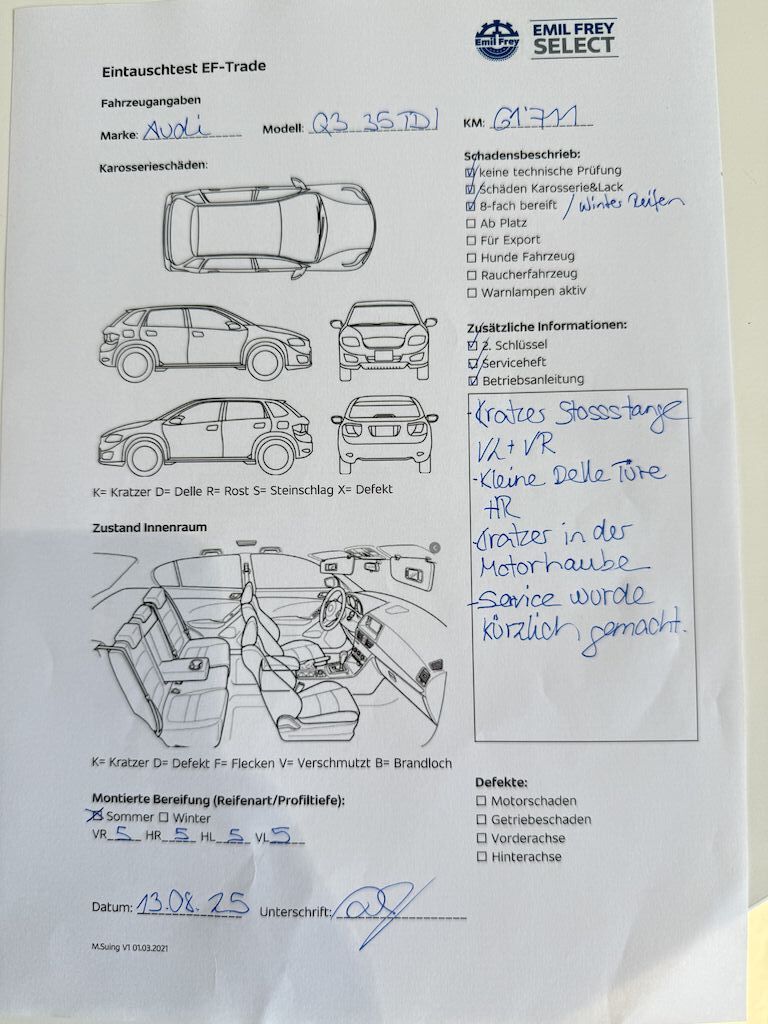 Emil Frey
EMIL FREY
SELECT
Eintauschtest EF-Trade
Fahrzeugangaben
Marke: Audi Modell: Q3 35TDI KM: 61'711
Karosserieschäden:
K= Kratzer D= Delle R= Rost S= Steinschlag X= Defekt
Zustand Innenraum
K= Kratzer D= Defekt F= Flecken V= Verschmutzt B= Brandloch
Montierte Bereifung (Reifenart/Profiltiefe):
☒ Sommer ☐ Winter
VR 5 HR 5 HL 5 VL 5
Schadensbeschrieb:
☑ keine technische Prüfung
☑ Schäden Karosserie&Lack
☑ 8-fach bereift / Winter Reifen
☐ Ab Platz
☐ Für Export
☐ Hunde Fahrzeug
☐ Raucherfahrzeug
☐ Warnlampen aktiv
Zusätzliche Informationen:
☑ 2. Schlüssel
☑ Serviceheft
☑ Betriebsanleitung
- Kratzer Stossstange
VL + VR
- Kleine Delle Türe
HR
- Kratzer in der
Motorhaube
- Service wurde
kürzlich gemacht.
Defekte:
☐ Motorschaden
☐ Getriebeschaden
☐ Vorderachse
☐ Hinterachse
Datum: 13.08.25 Unterschrift:
M.Suing V1 01.03.2021